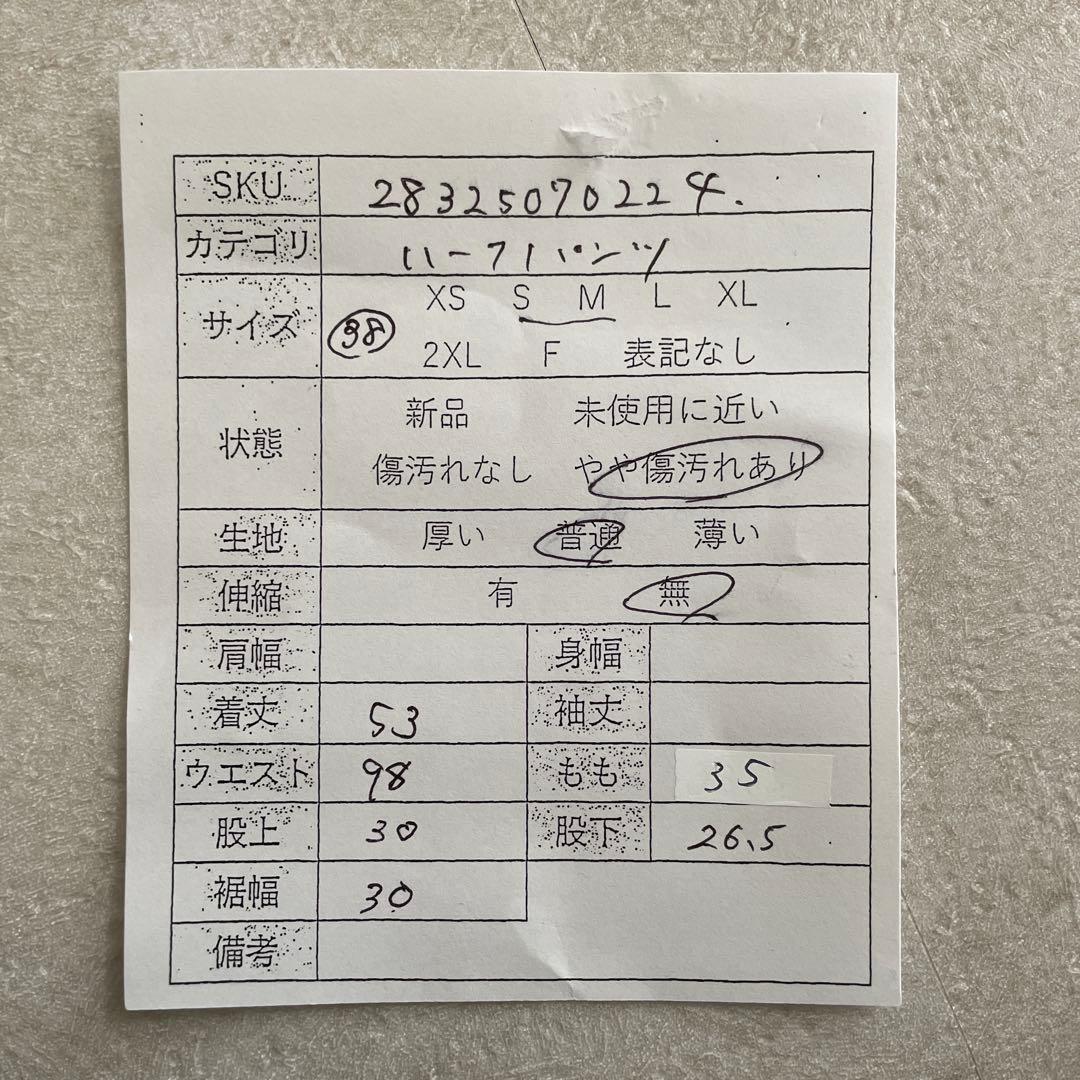 SKU 283250702224.
カテゴリ ハーフパンツ
サイズ 38 XS S M L XL
2XL F 表記なし
状態 新品 未使用に近い
傷汚れなし やや傷汚れあり
生地 厚い 普通 薄い
伸縮 有 無
肩幅 身幅
着丈 53 袖丈
ウエスト 98 もも 35
股上 30 股下 26.5
裾幅 30
備考